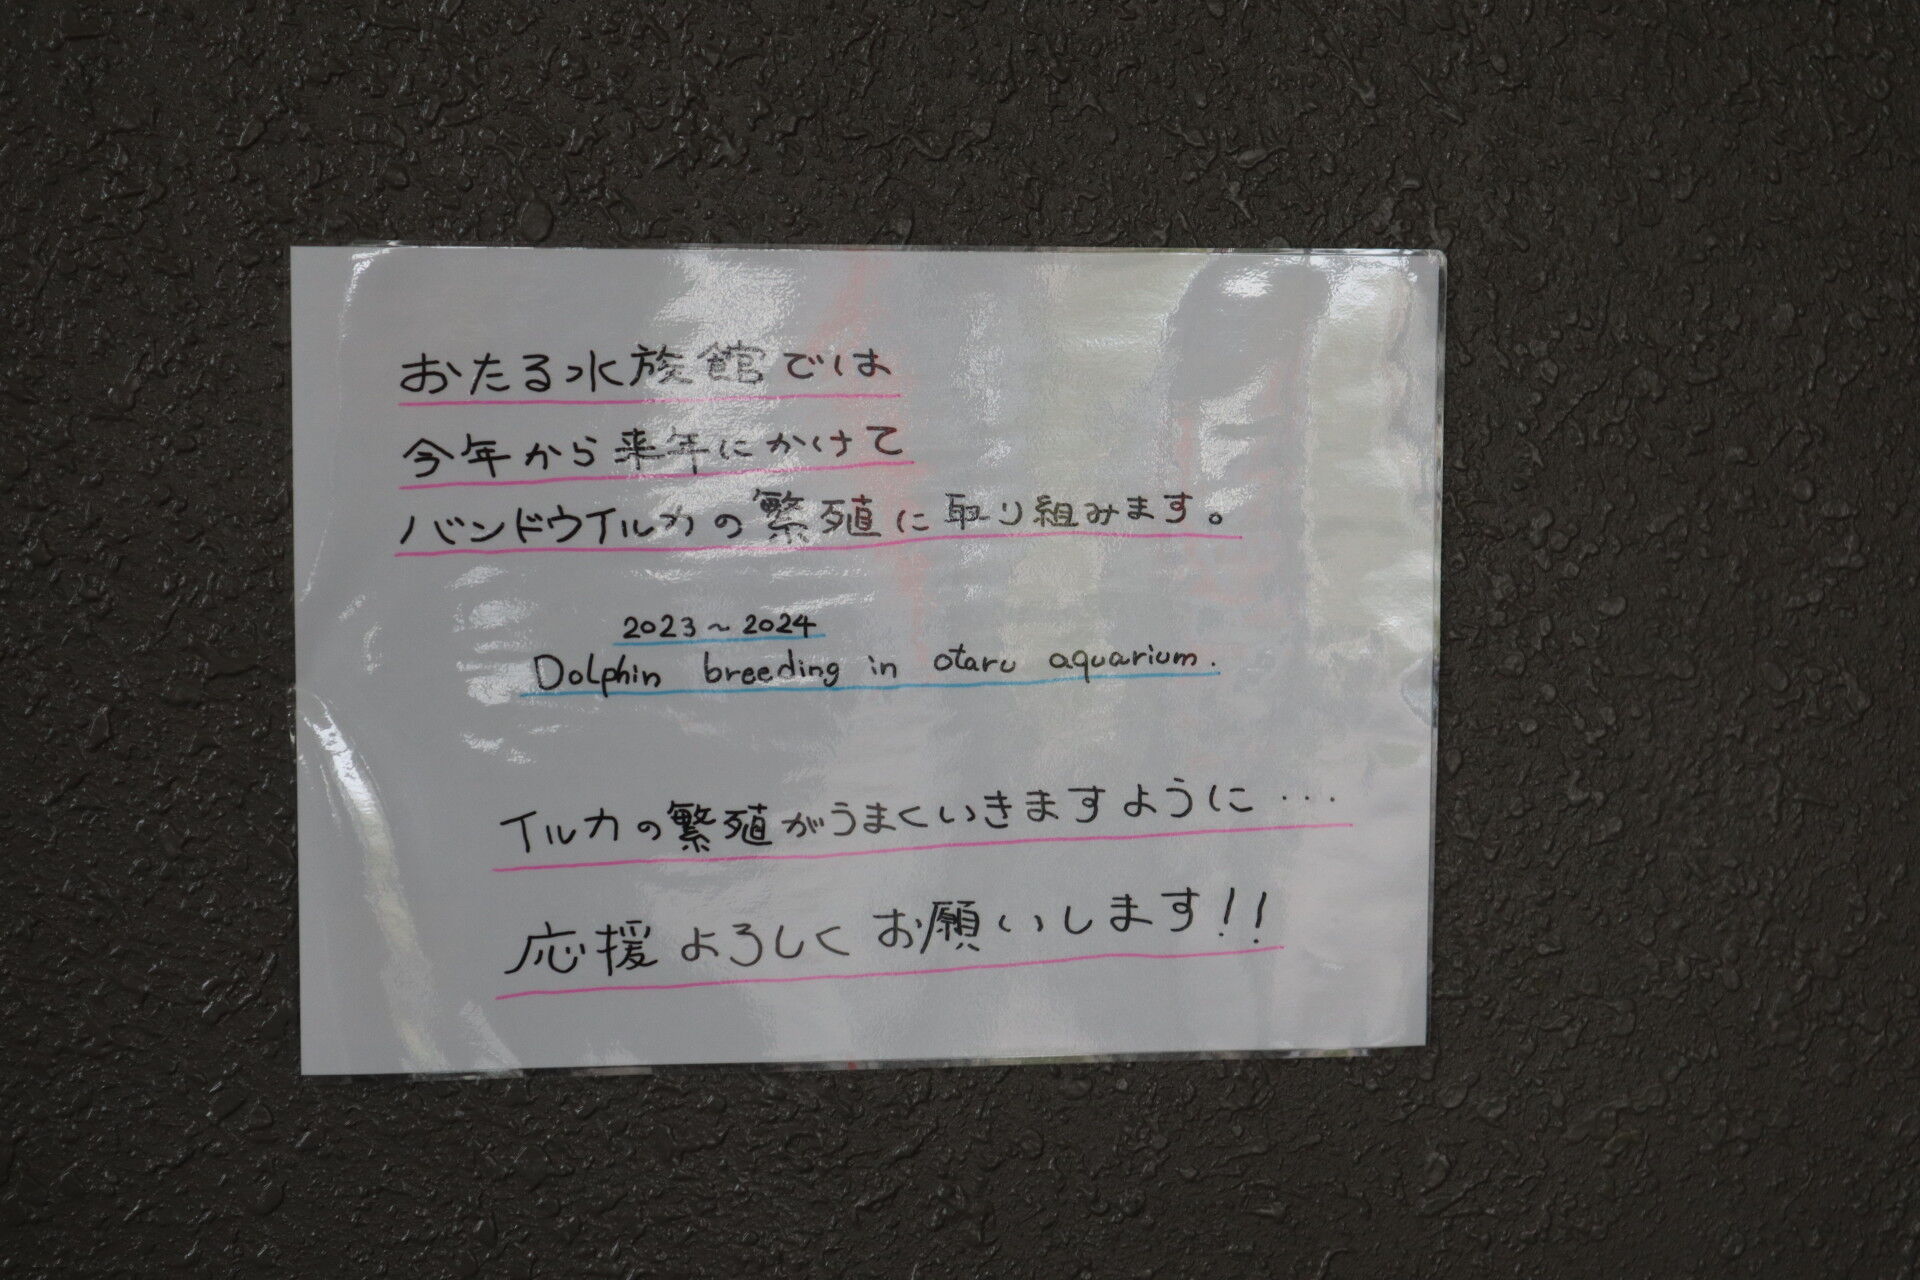 おたる水族館では
今年から来年にかけて
バンドウイルカの繁殖に取り組みます。
2023~2024
Dolphin breeding in otaru aquarium.
イルカの繁殖がうまくいきますように…
応援よろしくお願いします!!